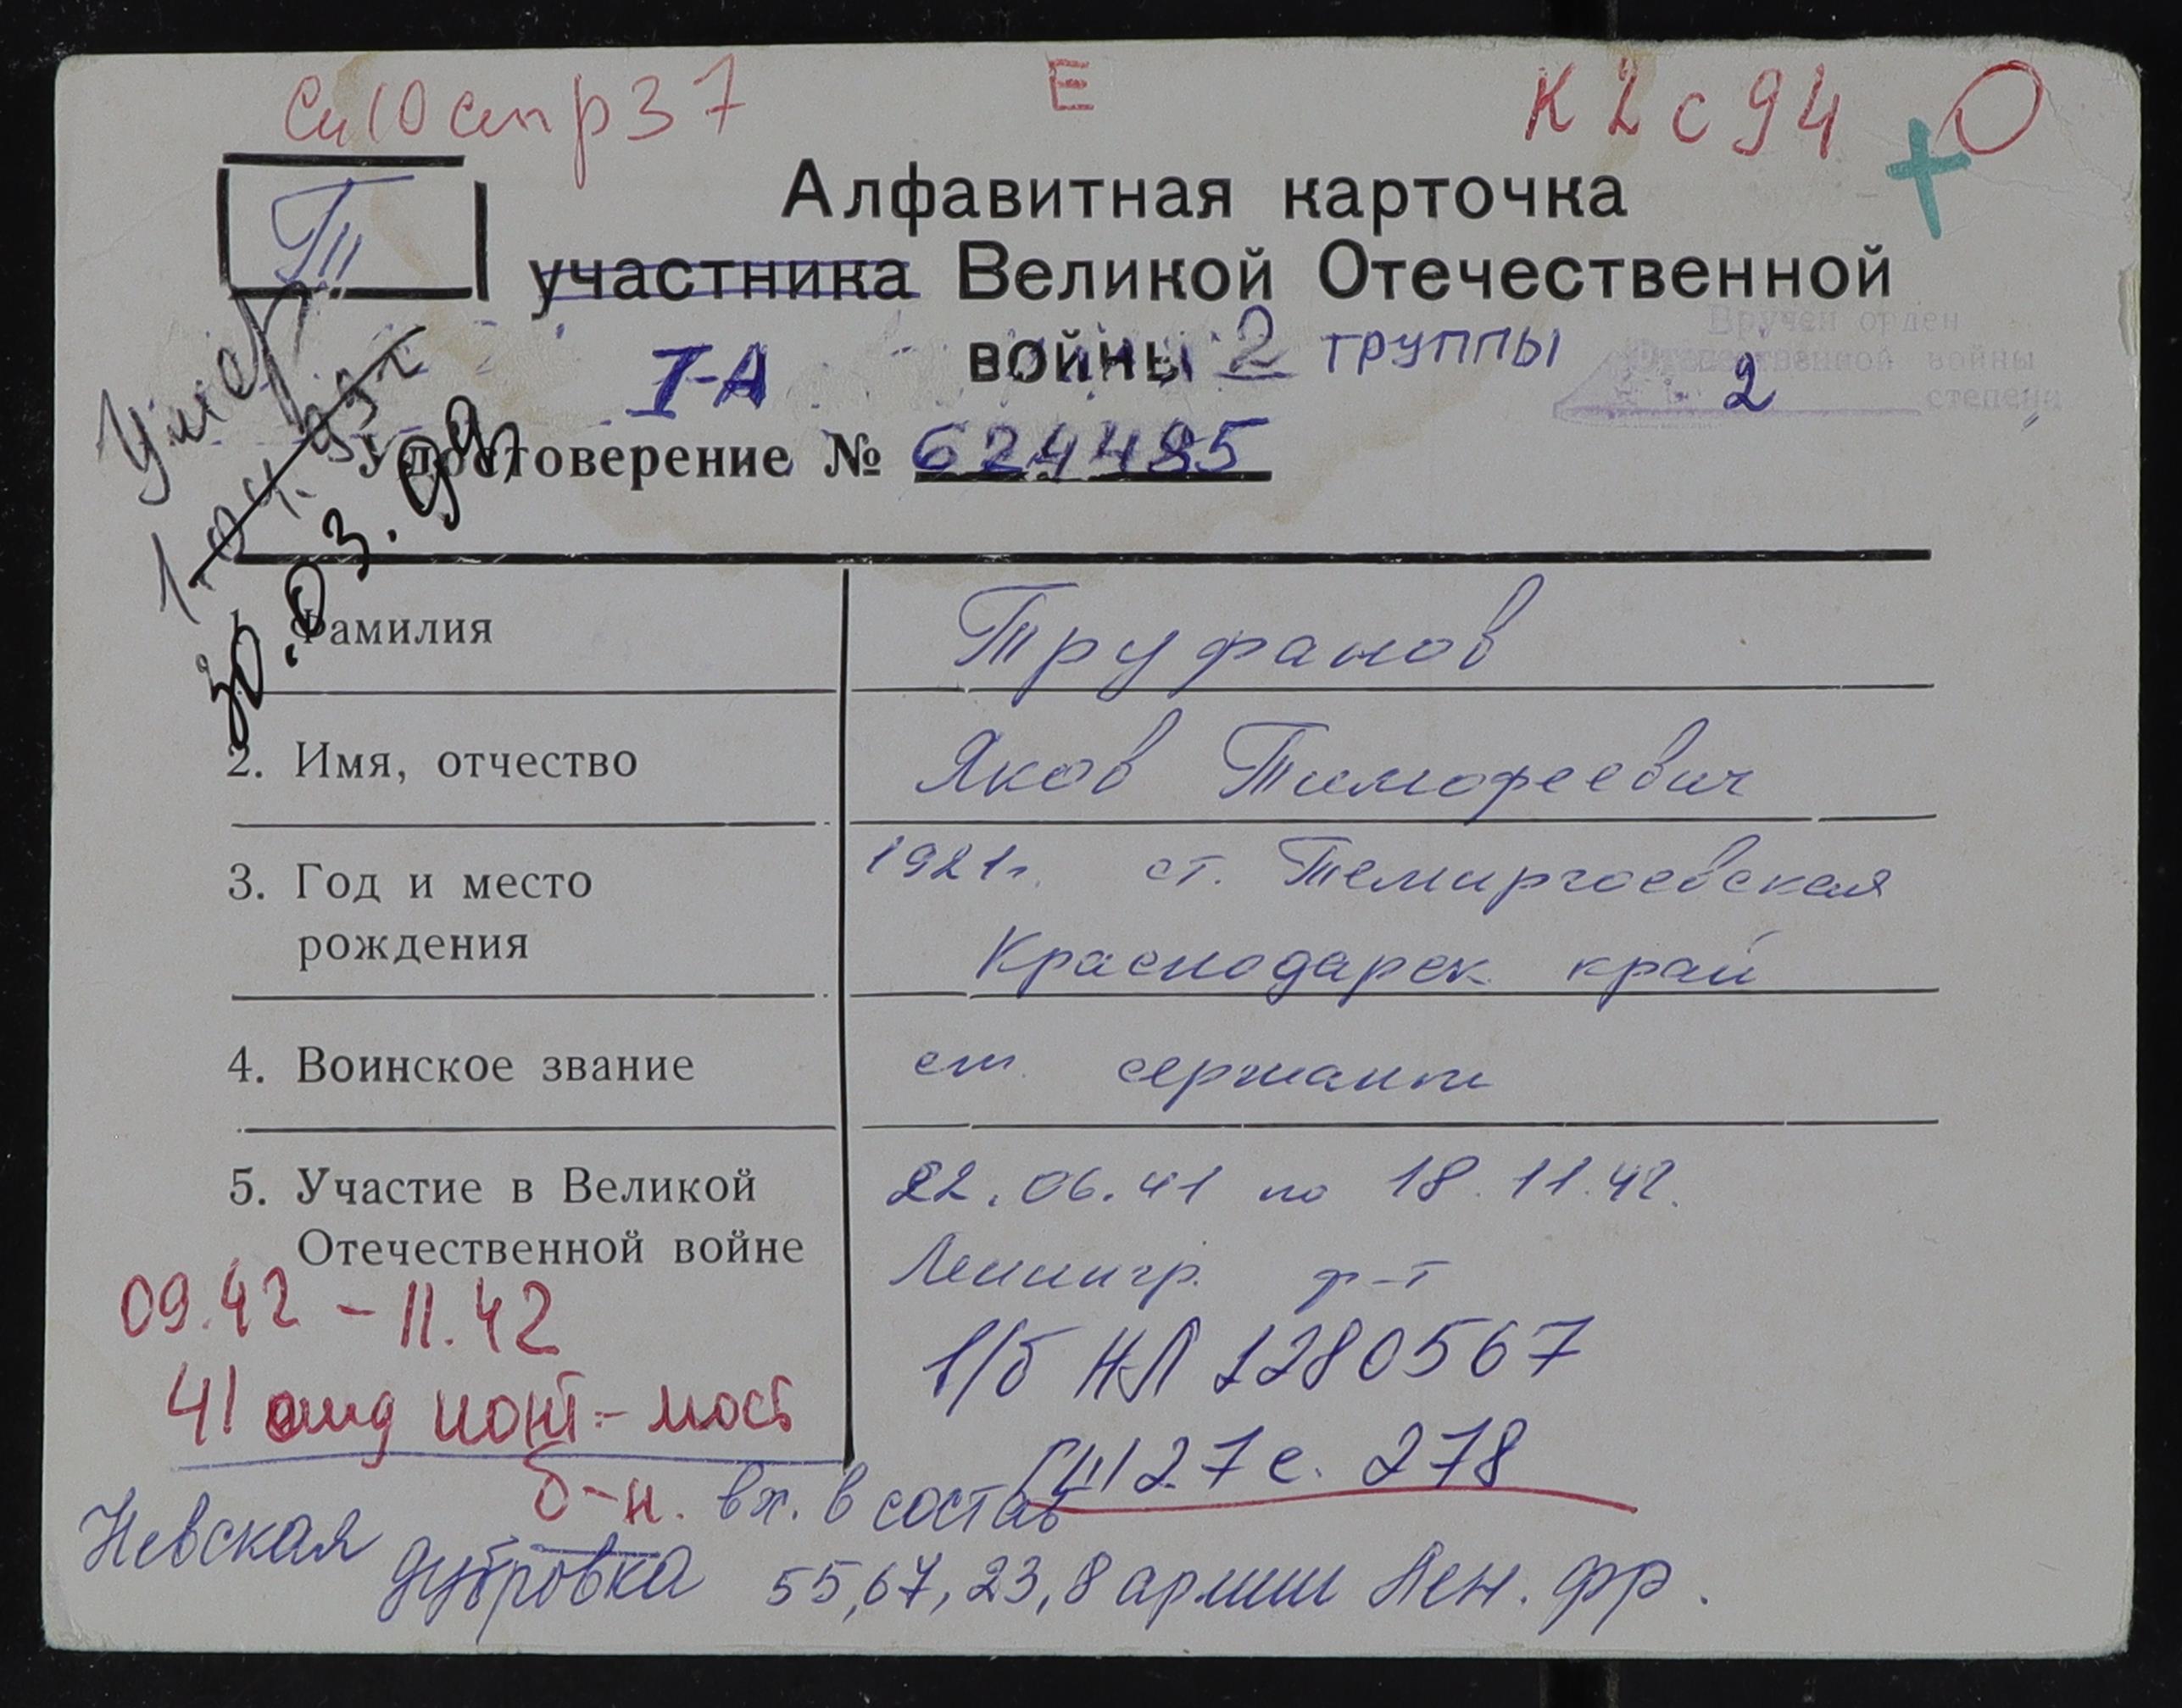 Е
К 2 с 94 О
Алфавитная карточка
участника Великой Отечественной
войны 2 группы
Вручен орден
Отечественной войны
2 степени
I-А
Удостоверение № 624485
Умер
30.03.99
Фамилия Труфанов
2. Имя, отчество Яков Тимофеевич
3. Год и место рождения 1921г. ст. Темиргоевская
Краснодарск. край
4. Воинское звание ст. сержант
5. Участие в Великой Отечественной войне 22.06.41 по 18.11.42.
Ленингр. ф-т
в/б НЛ 1280567
127 с. 278
09.42 - 11.42
41 понт.-мост
б-н. вх. в состав
Невская дубровка 55, 67, 23, 8 армии Лен. фр.